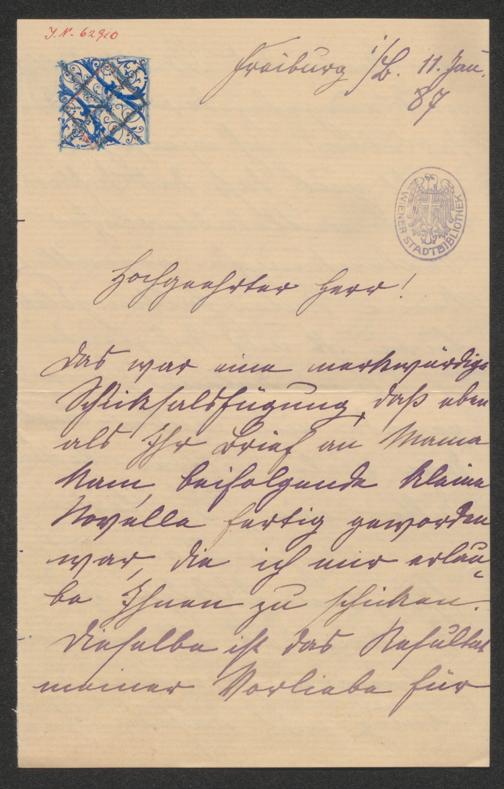 J.N. 62920
Freiburg i/B. 11. Jan.
87
WIENER STADTBIBLIOTHEK
Hochgeehrter Herr!
Das war eine merkwürdige
Schicksalsfügung, daß eben
als Ihr Brief an Mama
kam, beifolgende kleine
Novelle fertig geworden
war, die ich mir erlau-
be Ihnen zu schicken.
Dieselbe ist das Resultat
meiner Vorliebe für